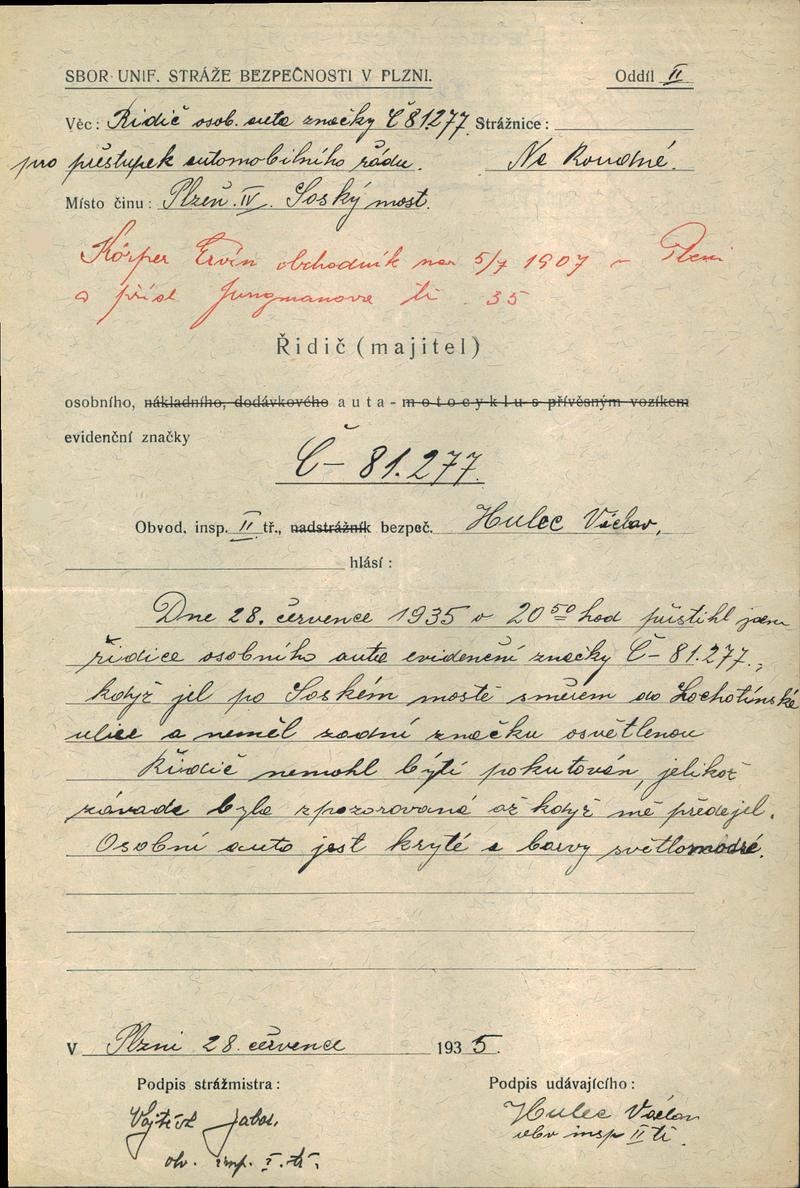 SBOR UNIF. STRÁŽE BEZPEČNOSTI V PLZNI. Oddíl II
Věc: Řidič osob. auta značky Č 81.277 Strážnice:
pro přestupek automobilního řádu. Na Roudné.
Místo činu: Plzeň. IV. Saský most.
Körper Ervín obchodník nar 5/7 1907 v Plzni
a přísl Jungmanova tř. 35
Řidič (majitel)
osobního, nákladního, dodávkového auta - motocyklu s přívěsným vozíkem
evidenční značky
Č – 81.277.
Obvod. insp. II tř., nadstrážník bezpeč. Hulec Václav,
hlásí:
Dne 28. července 1935 v 20 50 hod přistihl jsem
řidiče osobního auta evidenční značky Č – 81.277.,
když jel po Saském mostě směrem do Lochotínské
ulice a neměl zadní značku osvětlenou
Řidič nemohl býti pokutován, jelikož
závada byla zpozorovaná až když mě předejel.
Osobní auto jest kryté a barvy světlomodré.
V Plzni 28. července 1935.
Podpis strážmistra: Podpis udávajícího:
Hulec Václav
obv insp II tř.
obv. insp. I. tř.